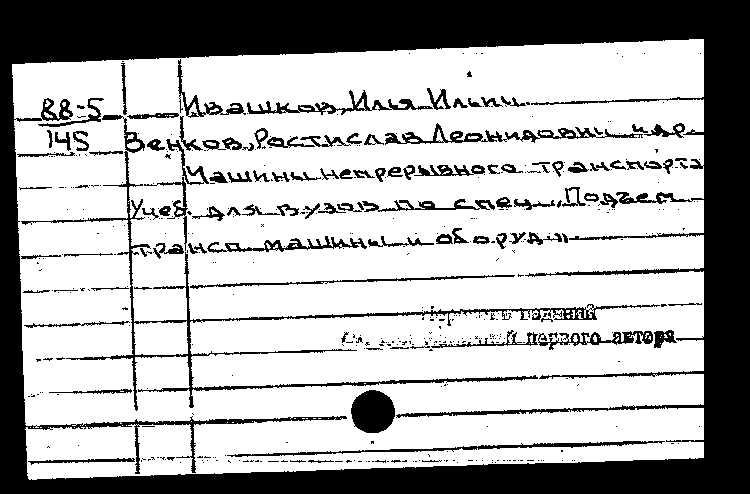 88-5 Ивашков, Илья Ильич
145 Зенков, Ростислав Леонидович и др.
Машины непрерывного транспорта
Учеб. для вузов по спец. „Подъем.
трансп. машины и оборуд.»
изданий
первого автора